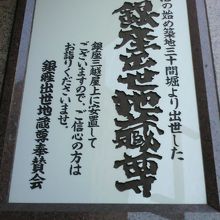 の始め築地三十間堀より出世した
銀座出世地蔵尊
銀座三越屋上に安置して
ございますので、ご信心の方は
お詣りくださいませ。
銀座出世地蔵尊奉賛会